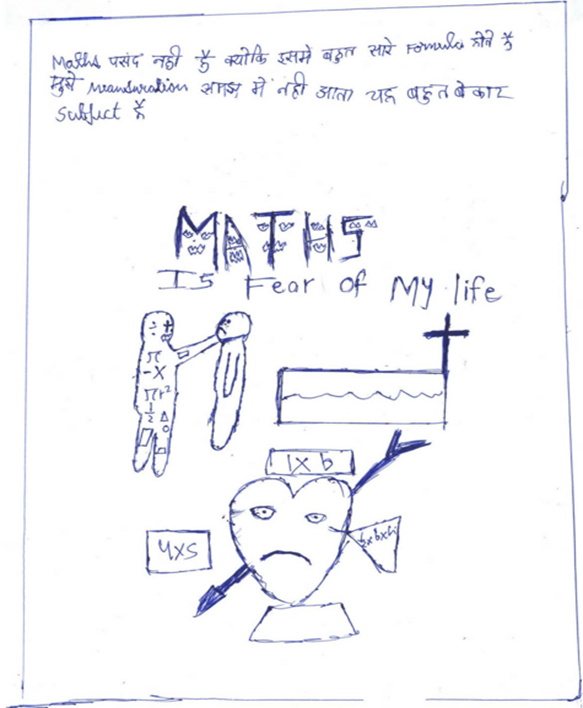 Maths पसंद नही है क्योकि इसमे बहुत सारे Formula होते है
मुझे meansuration समझ मे नही आता यह बहुत बेकार
Subject है
MATHS
Is Fear of My life
÷ +
π
-X
πr²
1/2 Δ
l x b
4xs